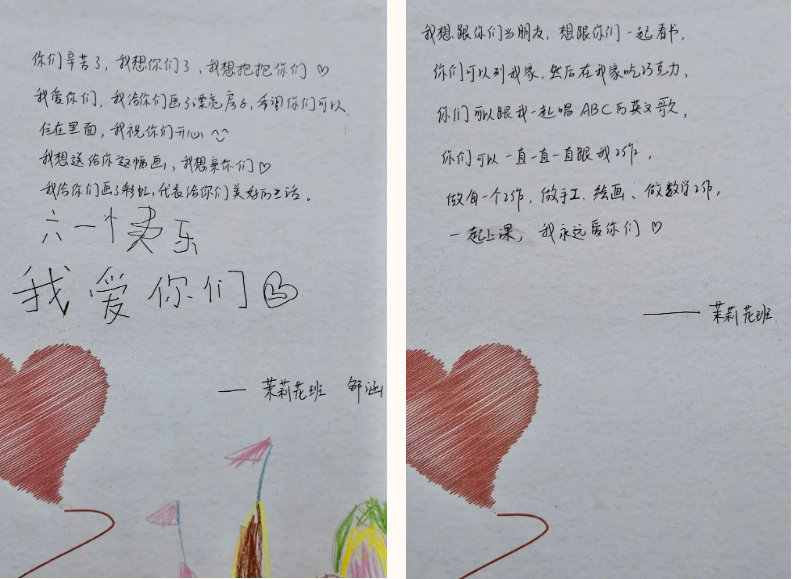 你们辛苦了，我想你们了，我想抱抱你们♡
我爱你们，我给你们画了漂亮房子，希望你们可以
住在里面，我祝你们开心
我想送给你这幅画，我想亲你们♡
我给你们画了彩虹，代表给你们美好的生活。
六一快乐
我爱你们
—— 茉莉花班 邹涵
我想跟你们当朋友，想跟你们一起看书，
你们可以到我家，然后在我家吃巧克力，
你们可以跟我一起唱ABC的英文歌，
你们可以一直一直一直跟我工作，
做每一个工作，做手工、绘画、做数学工作，
一起上课，我永远爱你们♡
—— 茉莉花班